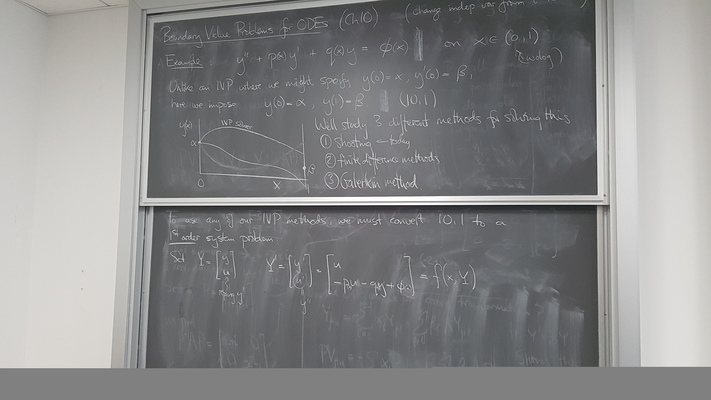 Boundary Value Problems for ODEs (Ch 10) (change indep var from
Example y'' + p(x)y' + q(x)y = ϕ(x) on x∈(0,1)
(wolog)
Unlike an IVP where we might specify y(0)=α, y'(0)=β,
here we impose y(0)=α, y(1)=β (10.1)
We'll study 3 different methods for solving this
① Shooting – today
② finite difference methods
③ Galerkin method
y(x)
IVP
α
β
0 x 1
To use any of our IVP methods, we must convert 10.1 to a
1st order system problem
Set Y = [y u] Y' = [y' u'] = [u -pu - qy + ϕ] = f(x,Y)
y''